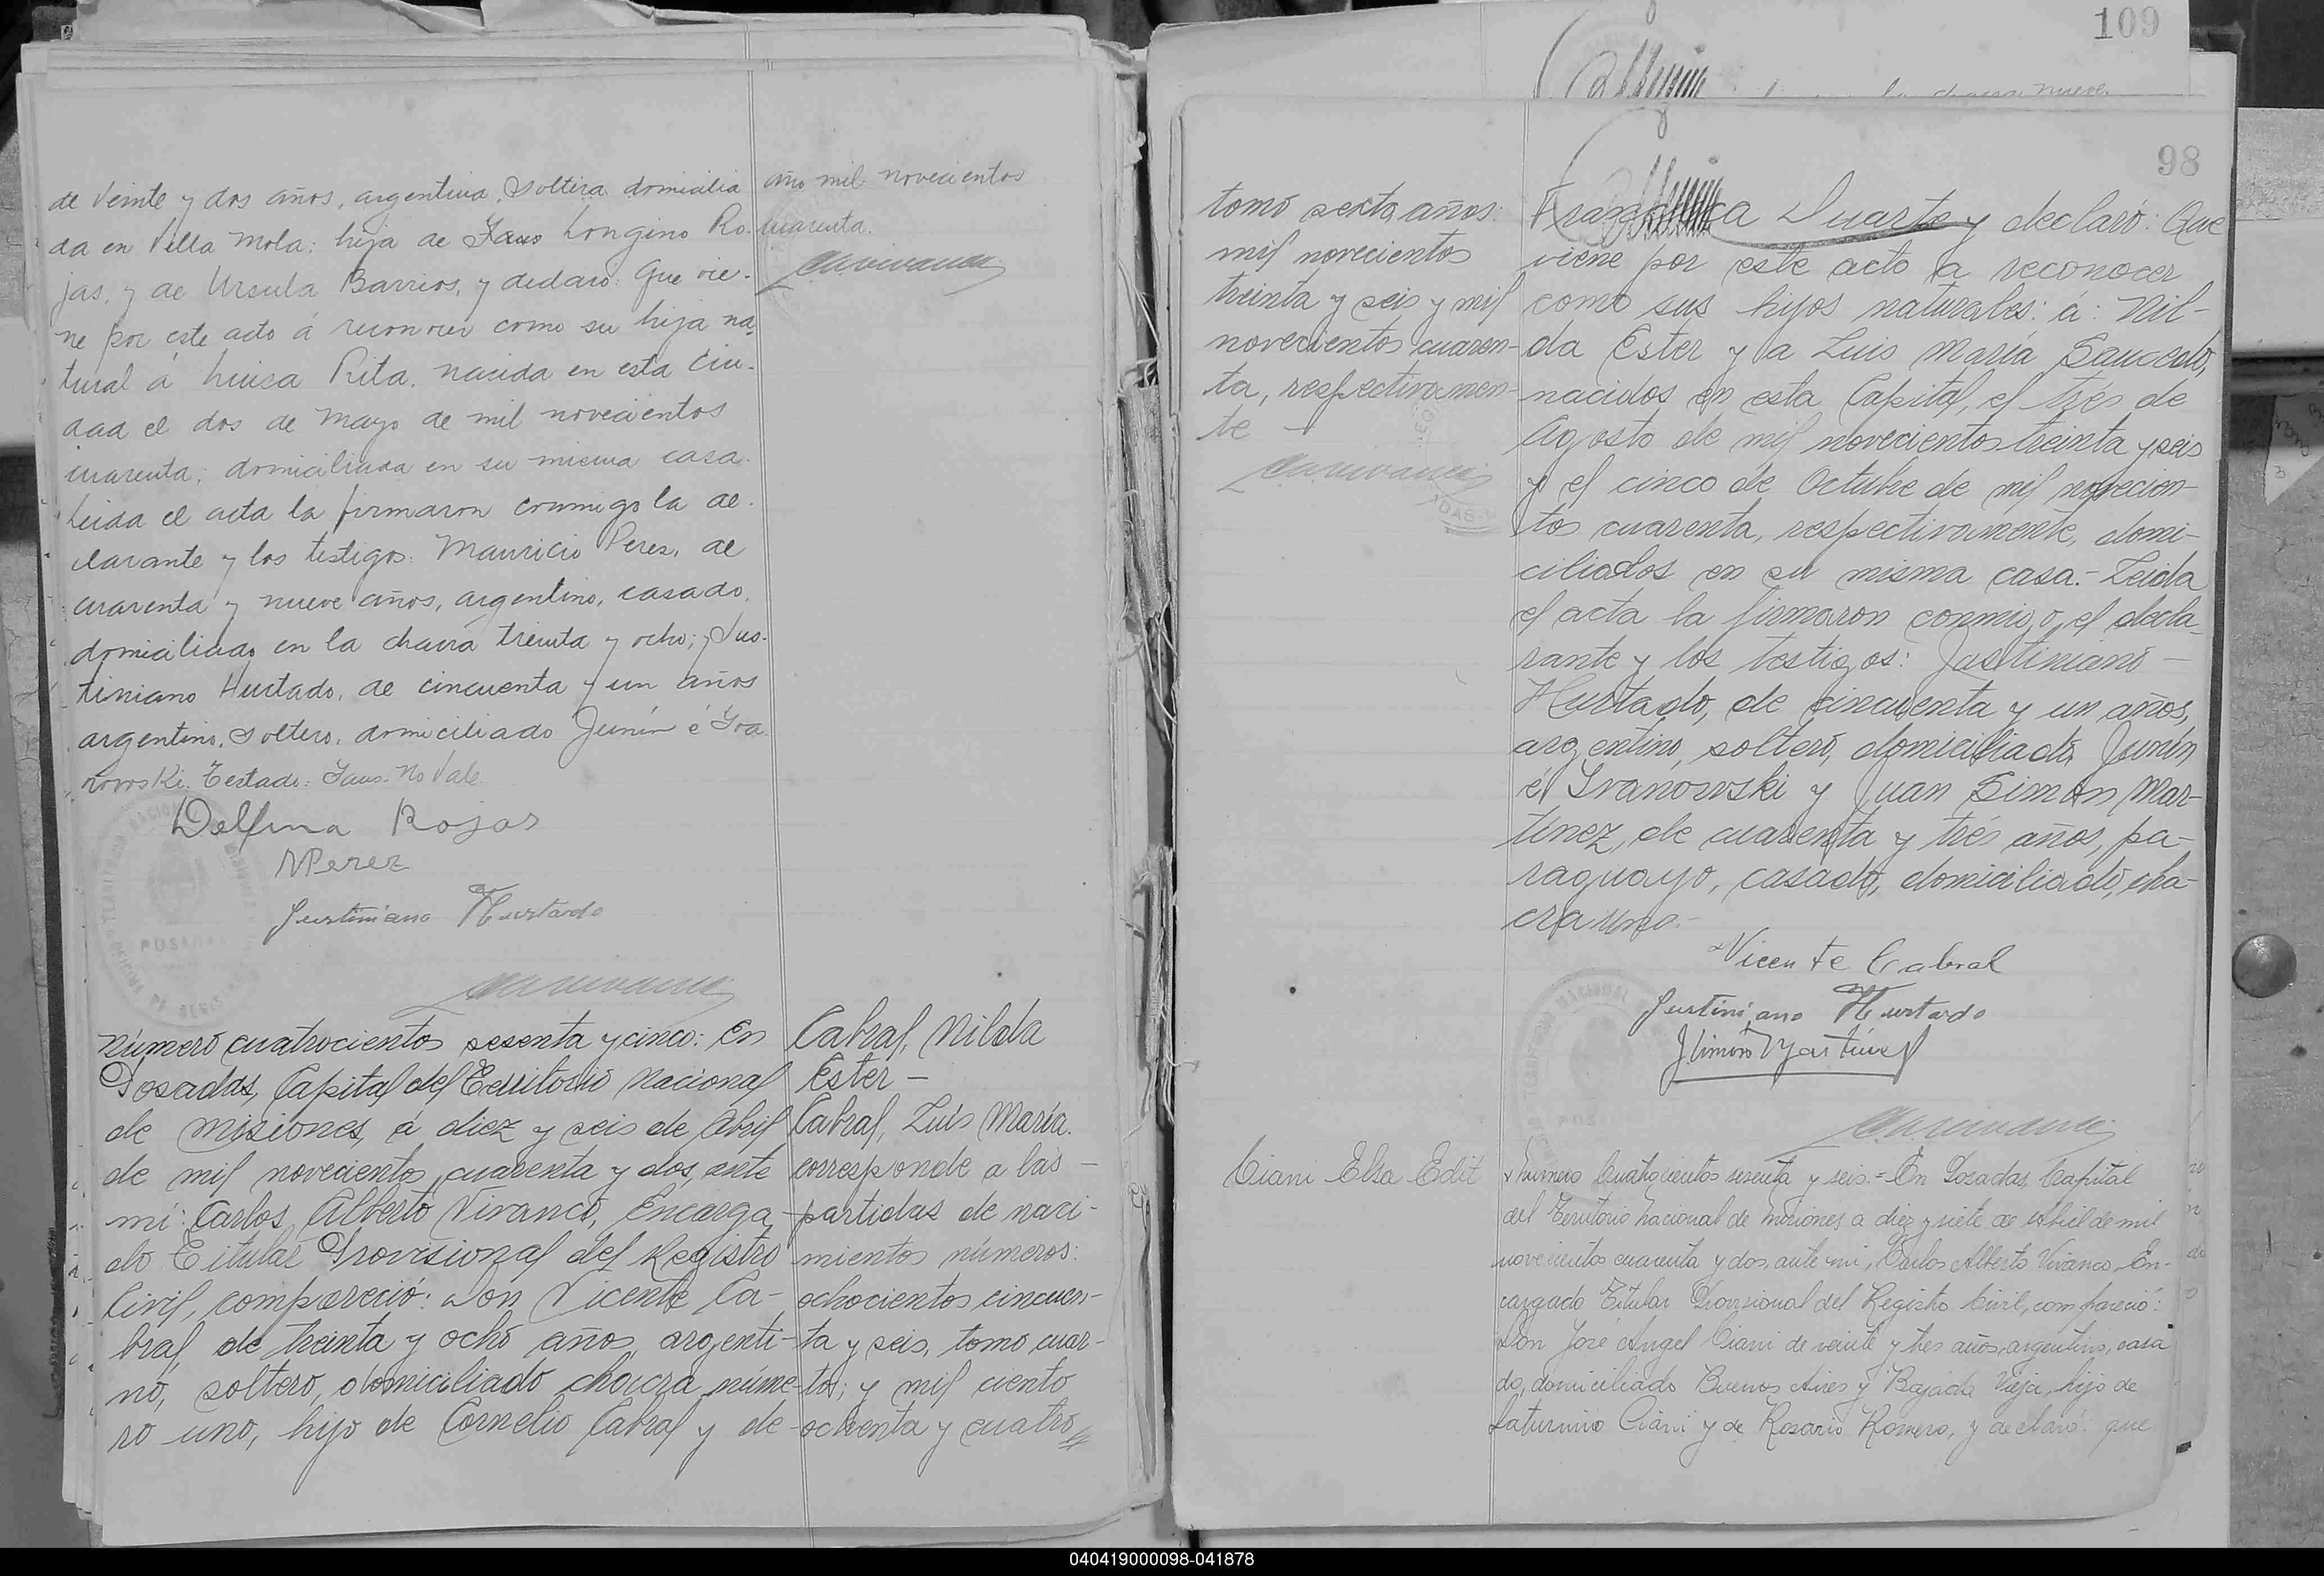 de Veinte y dos años, argentina, Soltera domicilia
da en Villa Mola: hija de Faus Longino Ro-
jas, y de Ursula Barrios, y declaró: Que vie-
ne por este acto á reconocer como su hija na
tural á Luisa Rita. nacida en esta Ciu-
dad el dos de Mayo de mil novecientos
cuarenta; domiciliada en su misma casa.
Leida el acta la firmaron conmigo la de-
clarante y los testigos: Mauricio Perez, de
cuarenta y nueve años, argentino, casado,
domiciliado en la chacra treinta y ocho; y Jus-
tiniano Hurtado, de cincuenta y un años
argentino, Soltero, domiciliado Junín é Iva
nowski. Testado: Faus. No Vale.
Delfina Rojas
MPerez
Justiniano Hurtado
año mil novecientos
cuarenta.
Número cuatrocientos sesenta y cinco: En
Posadas, Capital del Territorio Nacional
de Misiones, á diez y seis de Abril
de mil novecientos cuarenta y dos, ante
mí: Carlos Alberto Vivanco, Encarga-
do Titular Provisional del Registro
Civil, compareció: Don Vicente Ca-
bral, de treinta y ocho años, argenti-
no, soltero, domiciliado chacra núme-
ro uno, hijo de Cornelio Cabral y de
Cabral, Nilda
Ester -
Cabral, Luis María.
corresponde a las -
partidas de naci-
mientos números:
ochocientos cincuen-
ta y seis, tomo cuar-
to; y mil ciento
ochenta y cuatro
109
nueve.
98
tomo sexto, años:
mil novecientos
treinta y seis y mil
novecientos cuaren-
ta, respectivamen-
te -
Francisca Duarte y declaró: Que
viene por este acto a reconocer
como sus hijos naturales: á: Nil-
da Ester y a Luis María Saucedo,
nacidos en esta Capital, el trés de
Agosto de mil novecientos treinta y seis
y el cinco de Octubre de mil novecien-
tos cuarenta, respectivamente, domi-
ciliados en su misma casa.- Leida
el acta la firmaron conmigo, el decla-
rante y los testigos: Justiniano -
Hurtado, de cincuenta y un años,
argentino, soltero, domiciliado Junín
é Ivanowski y Juan Simón Mar-
tínez, de cuarenta y trés años, pa-
raguayo, casado, domiciliado, cha-
cra uno.-
Vicente Cabral
Justiniano Hurtado
JSimón Martinez
Ciani Elsa Edit
Número Cuatrocientos sesenta y seis.= En Posadas, Capital
del Territorio Nacional de Misiones a diez y siete de Abril de mil
novecientos cuarenta y dos, ante mi, Carlos Alberto Vivanco, En-
cargado Titular Provisional del Registro Civil, compareció:
Don José Angel Ciani de veinte y tres años, argentino, casa
do, domiciliado Buenos Aires y Bajada Vieja, hijo de
Saturnino Ciani y de Rosario Romero, y declaró: que
040419000098-041878